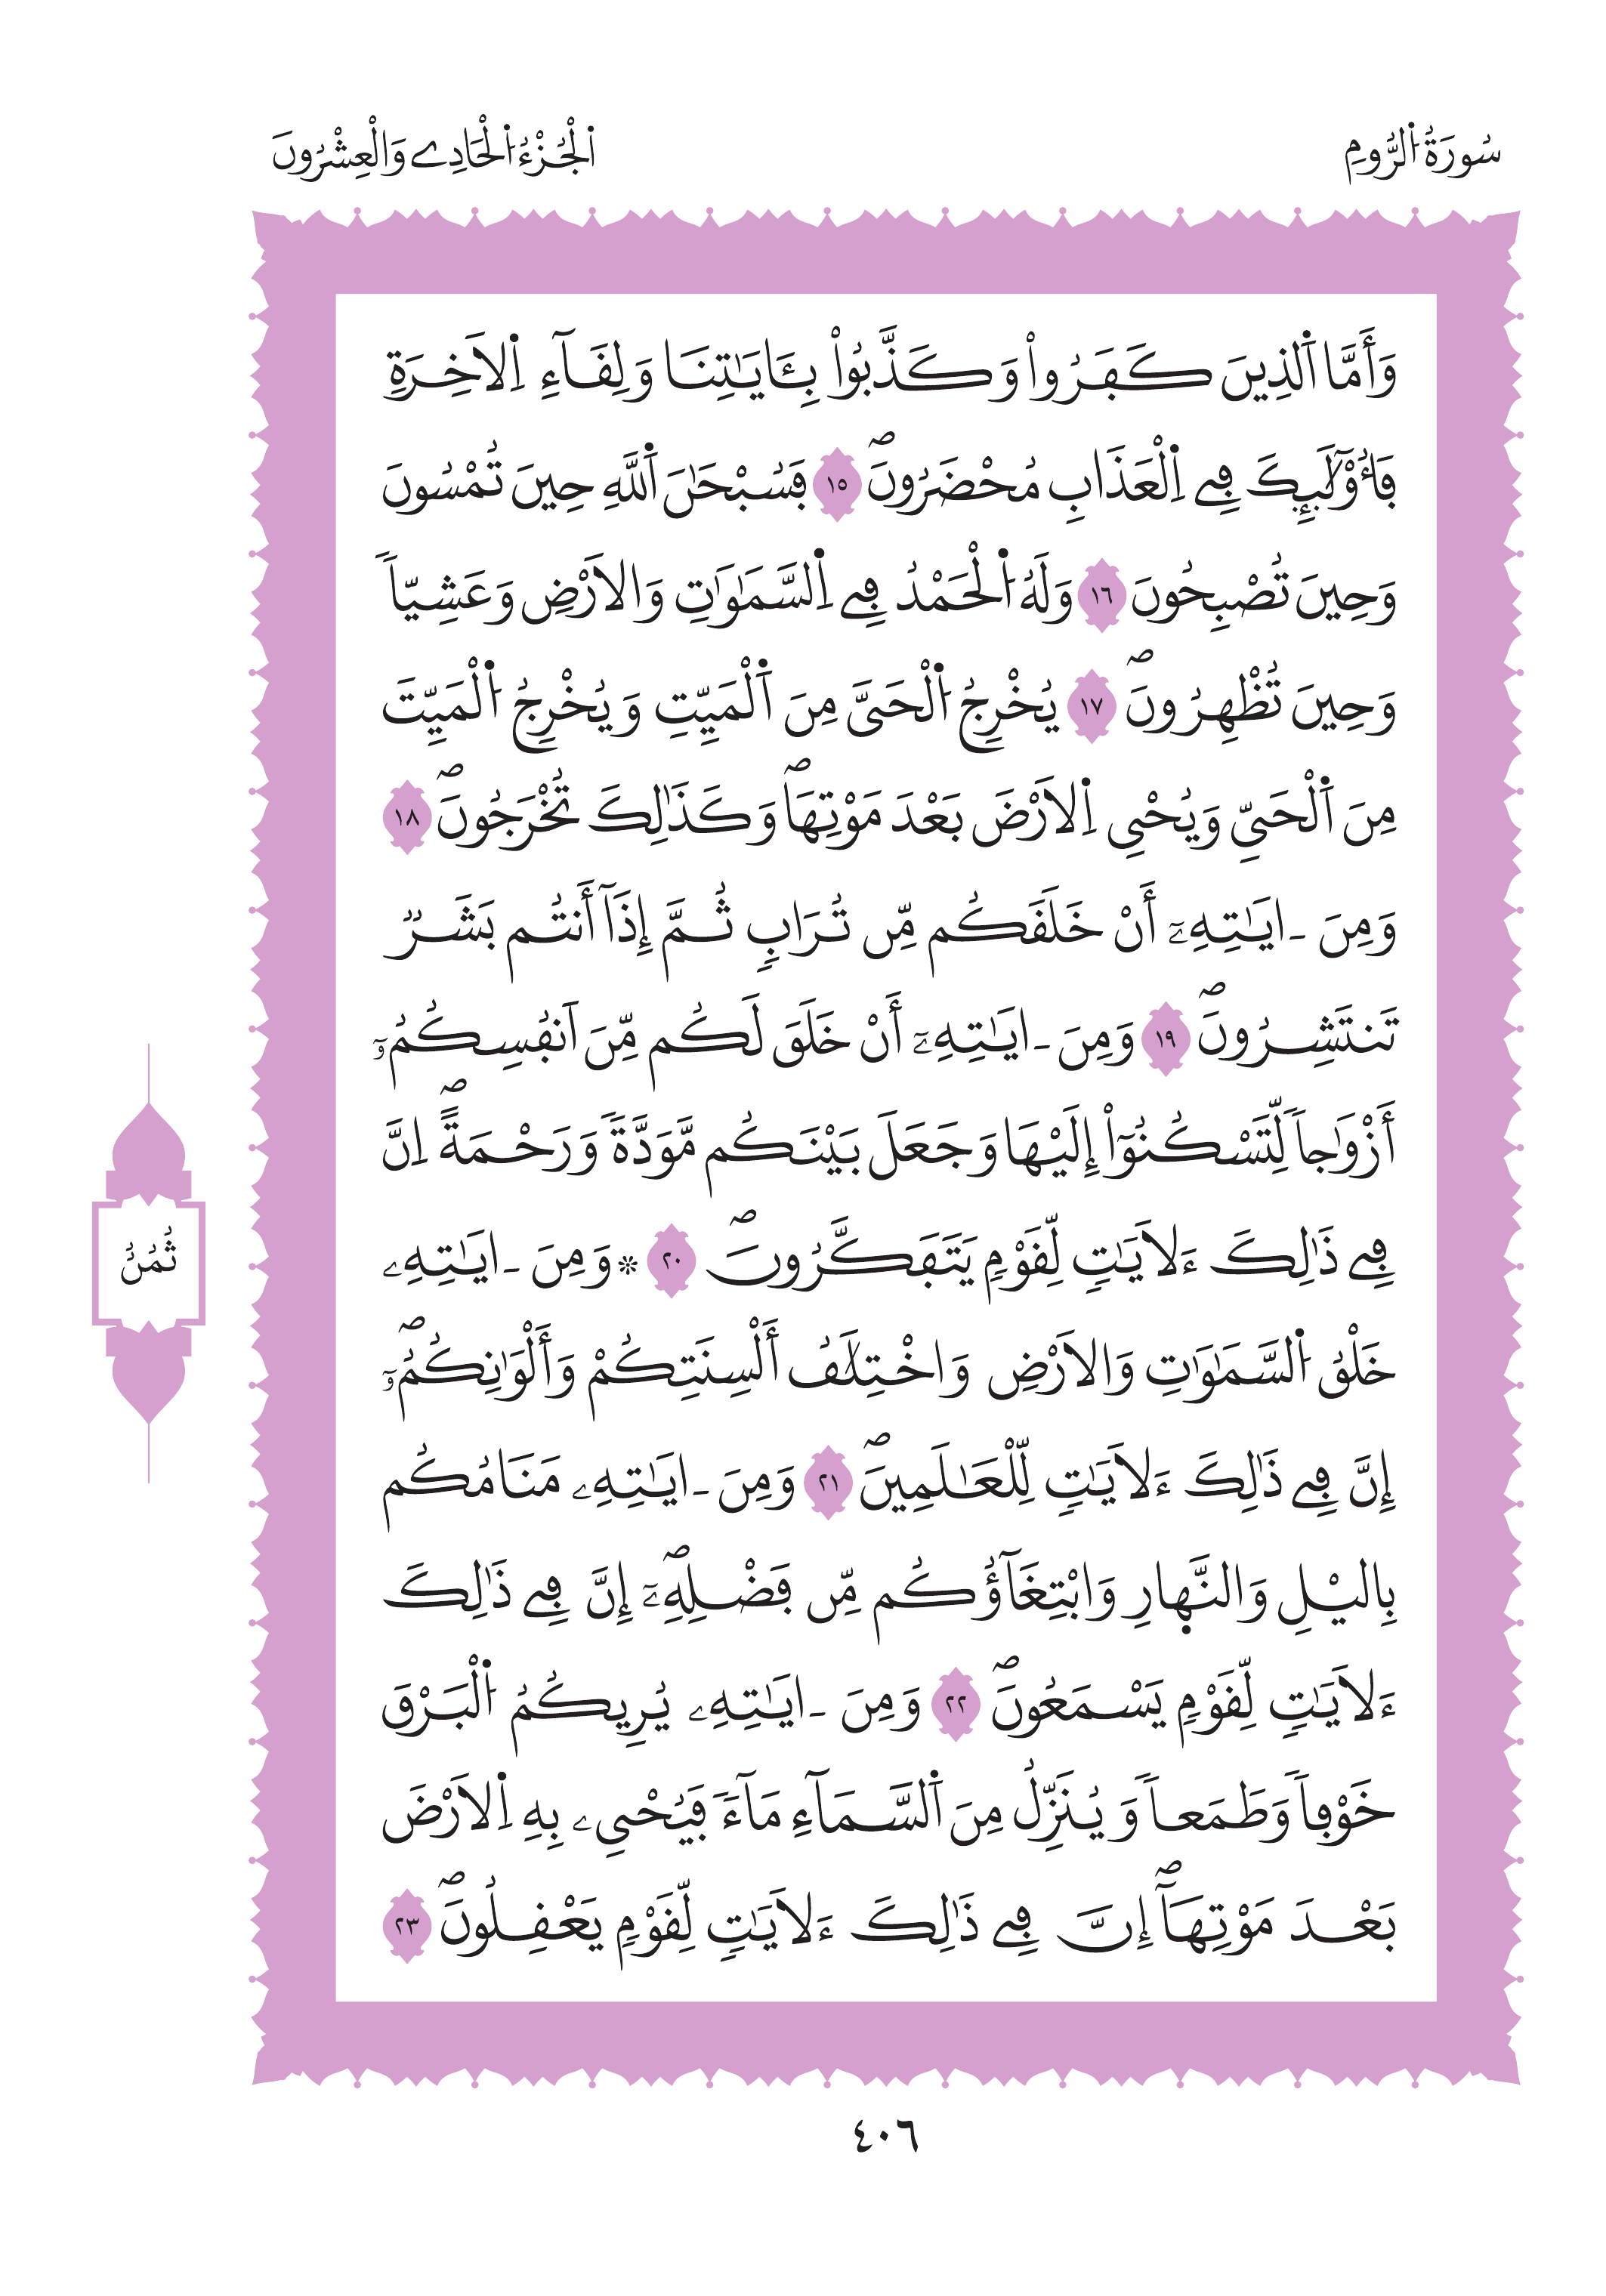 سُورَةُ اُ۬لرُّومِ
اَ۬لْجُزْءُ اُ۬لْحَادِے وَالْعِشْرُونَ
وَأَمَّا اَ۬لذِينَ كَفَرُواْ وَكَذَّبُواْ بِـَٔايَٰتِنَا وَلِقَآءِ اِ۬لَاخِرَةِ
فَأُوْلَٰٓئِكَ فِے اِ۬لْعَذَابِ مُحْضَرُونَۖ ١٥ فَسُبْحَٰنَ اَ۬للَّهِ حِينَ تُمْسُونَ
وَحِينَ تُصْبِحُونَ ١٦ وَلَهُ اُ۬لْحَمْدُ فِے اِ۬لسَّمَٰوَٰتِ وَالَارْضِ وَعَشِيّاٗ
وَحِينَ تُظْهِرُونَۖ ١٧ يُخْرِجُ اُ۬لْحَيَّ مِنَ اَ۬لْمَيِّتِ وَيُخْرِجُ اُ۬لْمَيِّتَ
مِنَ اَ۬لْحَيِّ وَيُحْيِ اِ۬لَارْضَ بَعْدَ مَوْتِهَاۖ وَكَذَٰلِكَ تُخْرَجُونَۖ ١٨
وَمِنَ ـ ايَٰتِهِۦٓ أَنْ خَلَقَكُم مِّن تُرَابٖ ثُمَّ إِذَآ أَنتُم بَشَرٞ
تَنتَشِرُونَۖ ١٩ وَمِنَ ـ ايَٰتِهِۦٓ أَنْ خَلَقَ لَكُم مِّنَ اَنفُسِكُمُۥٓ
أَزْوَٰجاٗ لِّتَسْكُنُوٓاْ إِلَيْهَا وَجَعَلَ بَيْنَكُم مَّوَدَّةٗ وَرَحْمَةًۖ اِنَّ
فِے ذَٰلِكَ ءَلَايَٰتٖ لِّقَوْمٖ يَتَفَكَّرُونَۖ ٢٠ ۞ وَمِنَ ـ ايَٰتِهِۦ
خَلْقُ اُ۬لسَّمَٰوَٰتِ وَالَارْضِ وَاخْتِلَٰفُ أَلْسِنَتِكُمْ وَأَلْوَٰنِكُمُۥٓۖ
إِنَّ فِے ذَٰلِكَ ءَلَايَٰتٖ لِّلْعَٰلَمِينَۖ ٢١ وَمِنَ ـ ايَٰتِهِۦ مَنَامُكُم
بِاليْلِ وَالنَّه۪ارِ وَابْتِغَآؤُكُم مِّن فَضْلِهِۦٓۖ إِنَّ فِے ذَٰلِكَ
ءَلَايَٰتٖ لِّقَوْمٖ يَسْمَعُونَۖ ٢٢ وَمِنَ ـ ايَٰتِهِۦ يُرِيكُمُ اُ۬لْبَرْقَ
خَوْفاٗ وَطَمَعاٗ وَيُنَزِّلُ مِنَ اَ۬لسَّمَآءِ مَآءٗ فَيُحْيِۦ بِهِ اِ۬لَارْضَ
بَعْدَ مَوْتِهَآۖ إِنَّ فِے ذَٰلِكَ ءَلَايَٰتٖ لِّقَوْمٖ يَعْقِلُونَۖ ٢٣
ثُمُنُ
٤٠٦